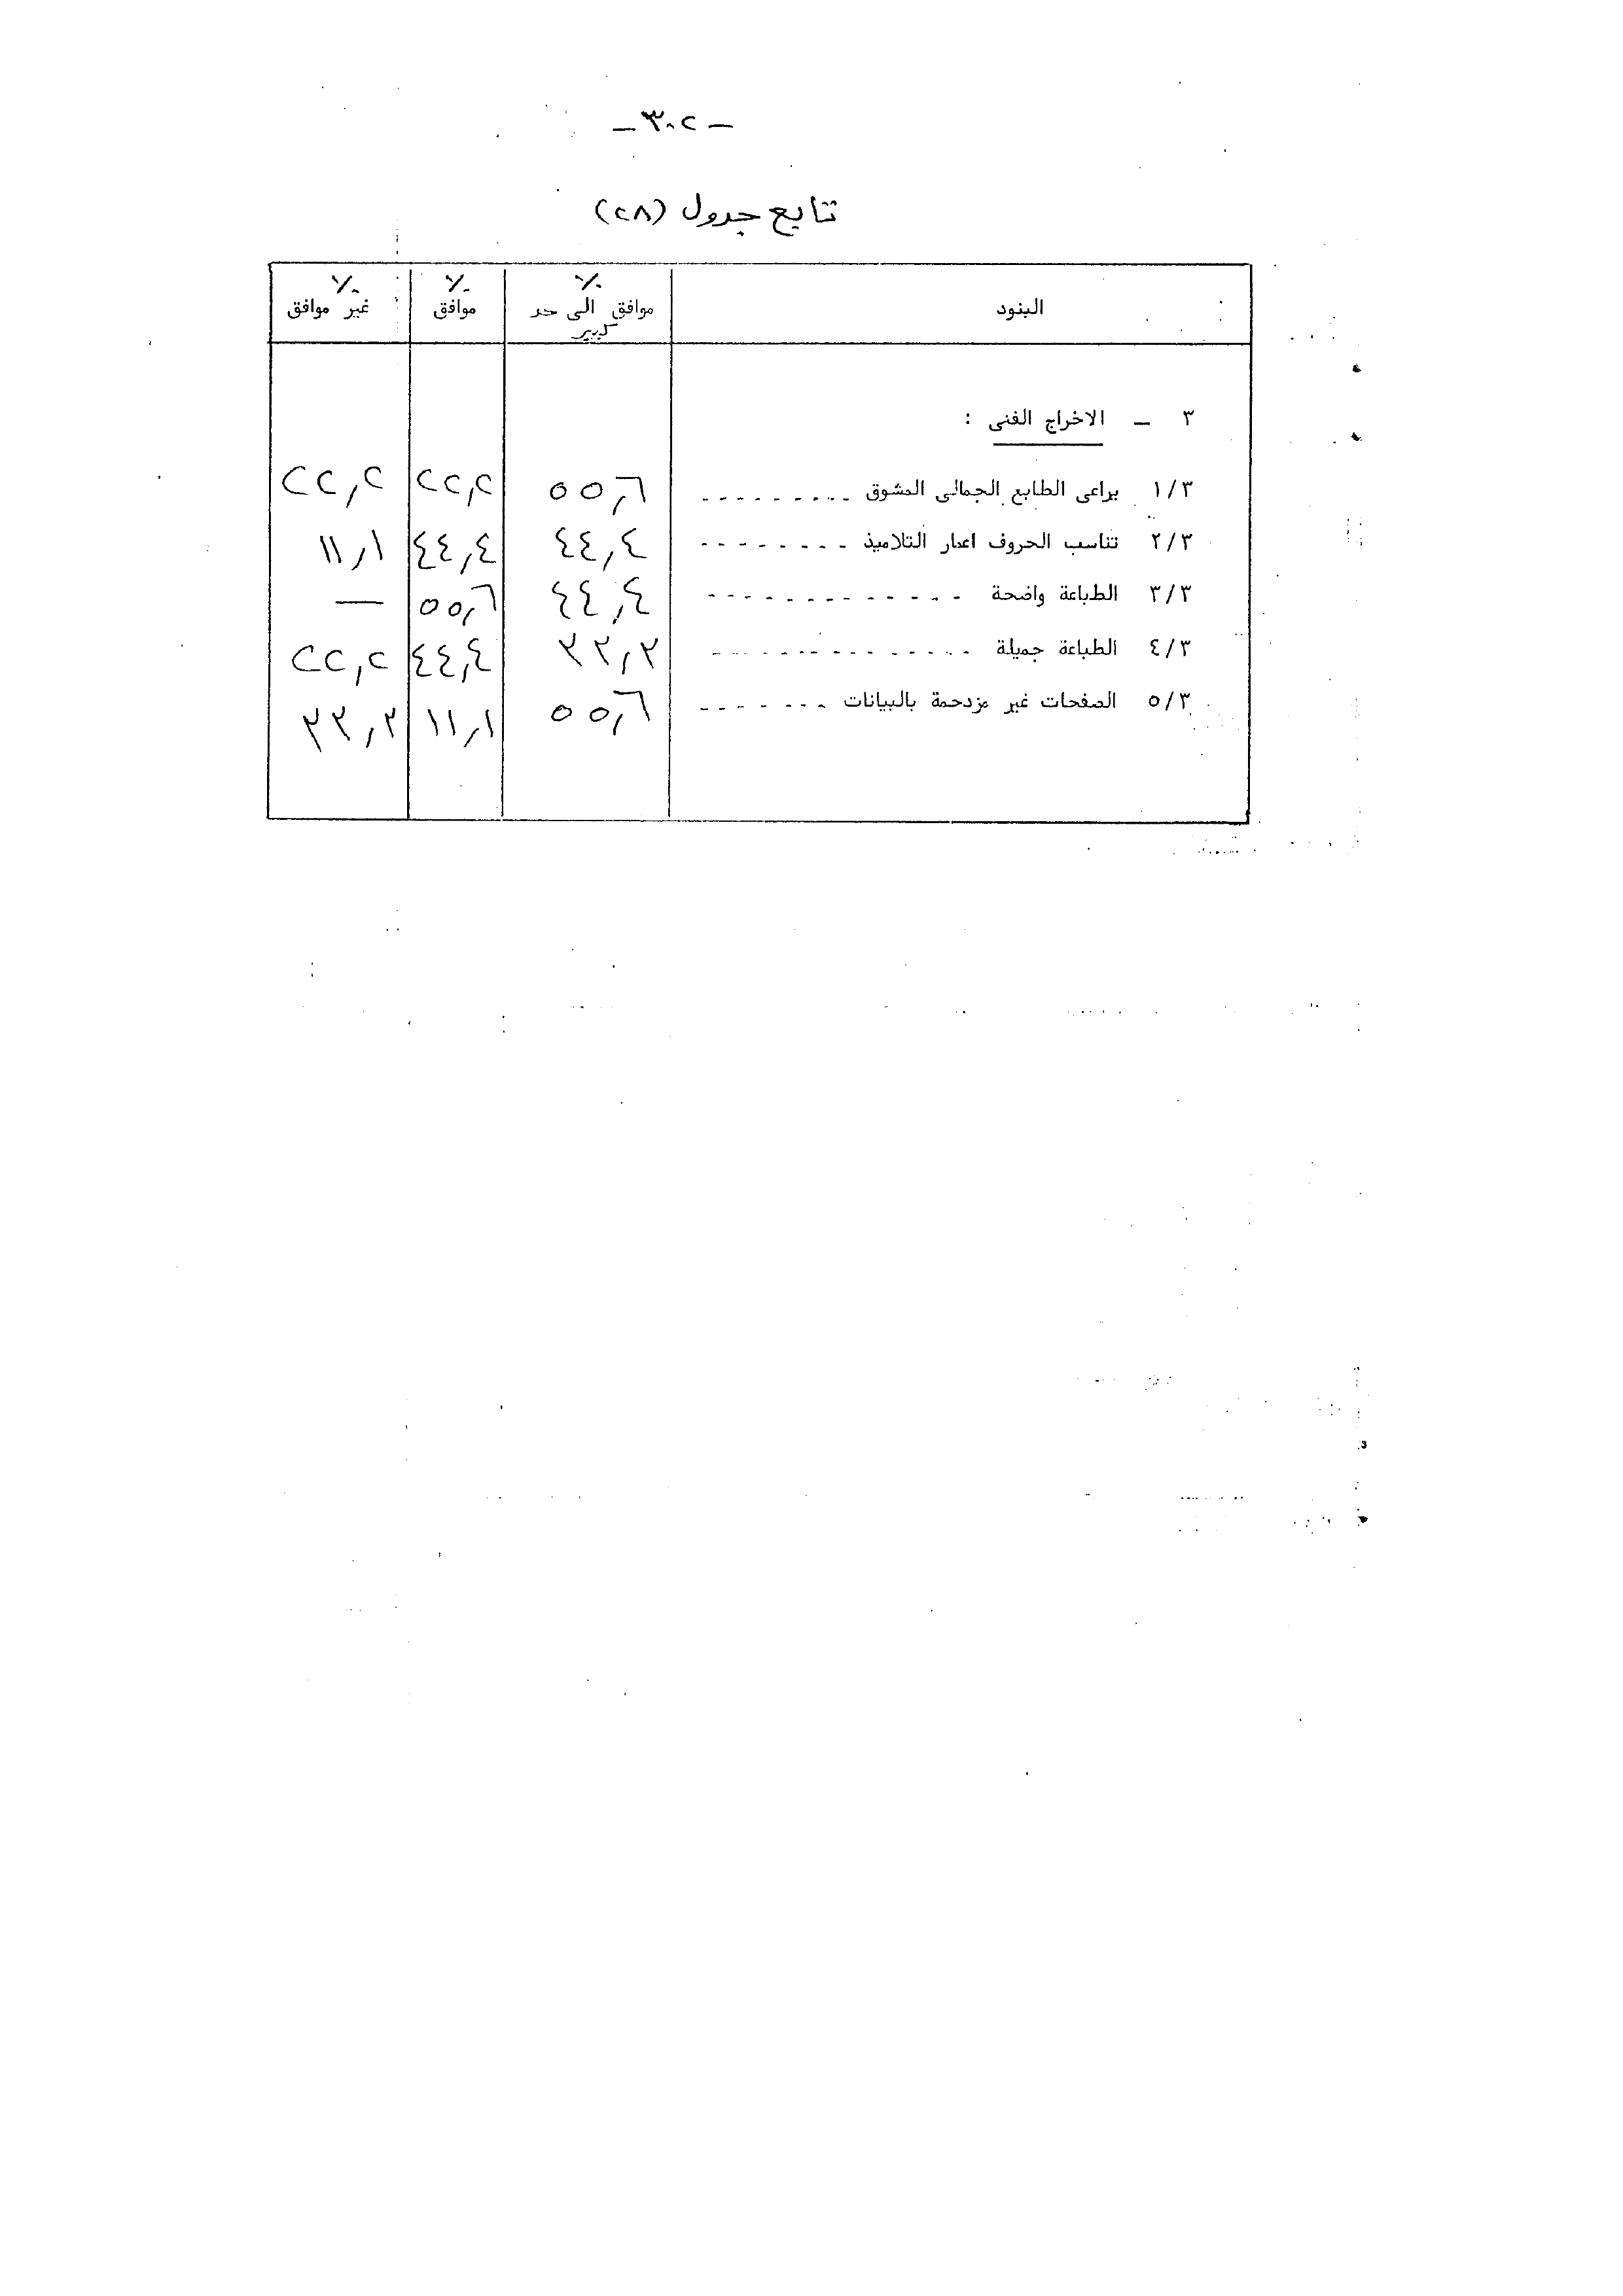 – ٣٠٢ –
تابع جدول (٢٨)
البنود | ٪ موافق الى حد كبير | ٪ موافق | ٪ غير موافق
٣ – الاخراج الفنى :
١/٣ يراعى الطابع الجمالى المشوق --------- ٥٥,٦ ٢٢,٢ ٢٢,٢
٢/٣ تناسب الحروف اعمار التلاميذ -------- ٤٤,٤ ٤٤,٤ ١١,١
٣/٣ الطباعة واضحة ------------- ٤٤,٤ ٥٥,٦ —
٤/٣ الطباعة جميلة ------------- ٣٣,٣ ٤٤,٤ ٢٢,٢
٥/٣ الصفحات غير مزدحمة بالبيانات ------- ٥٥,٦ ١١,١ ٣٣,٣